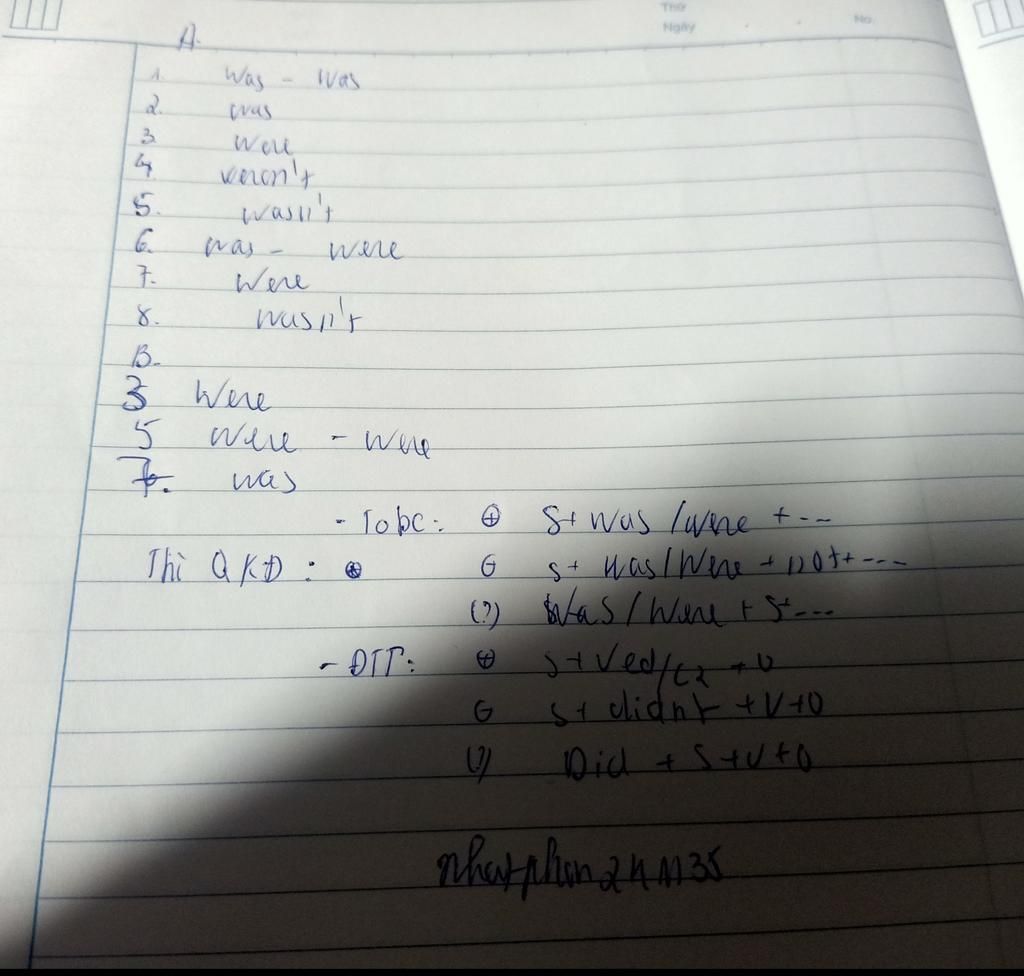 Thứ
Ngày
No.
A.
1. Was - Was
2. was
3. Were
4. weren't
5. wasn't
6. was - were
7. Were
8. wasn't
B.
3 Were
5 Were - were
7. was
- Tobe: (+) S+ was /were + ...
Thì QKĐ : (-) S+ was/Were + not+ ...
(?) Was / Were + S+...
- ĐTT: (+) S+Ved/C2 + O
(-) S+ didn't +V+O
(?) Did + S+V+O